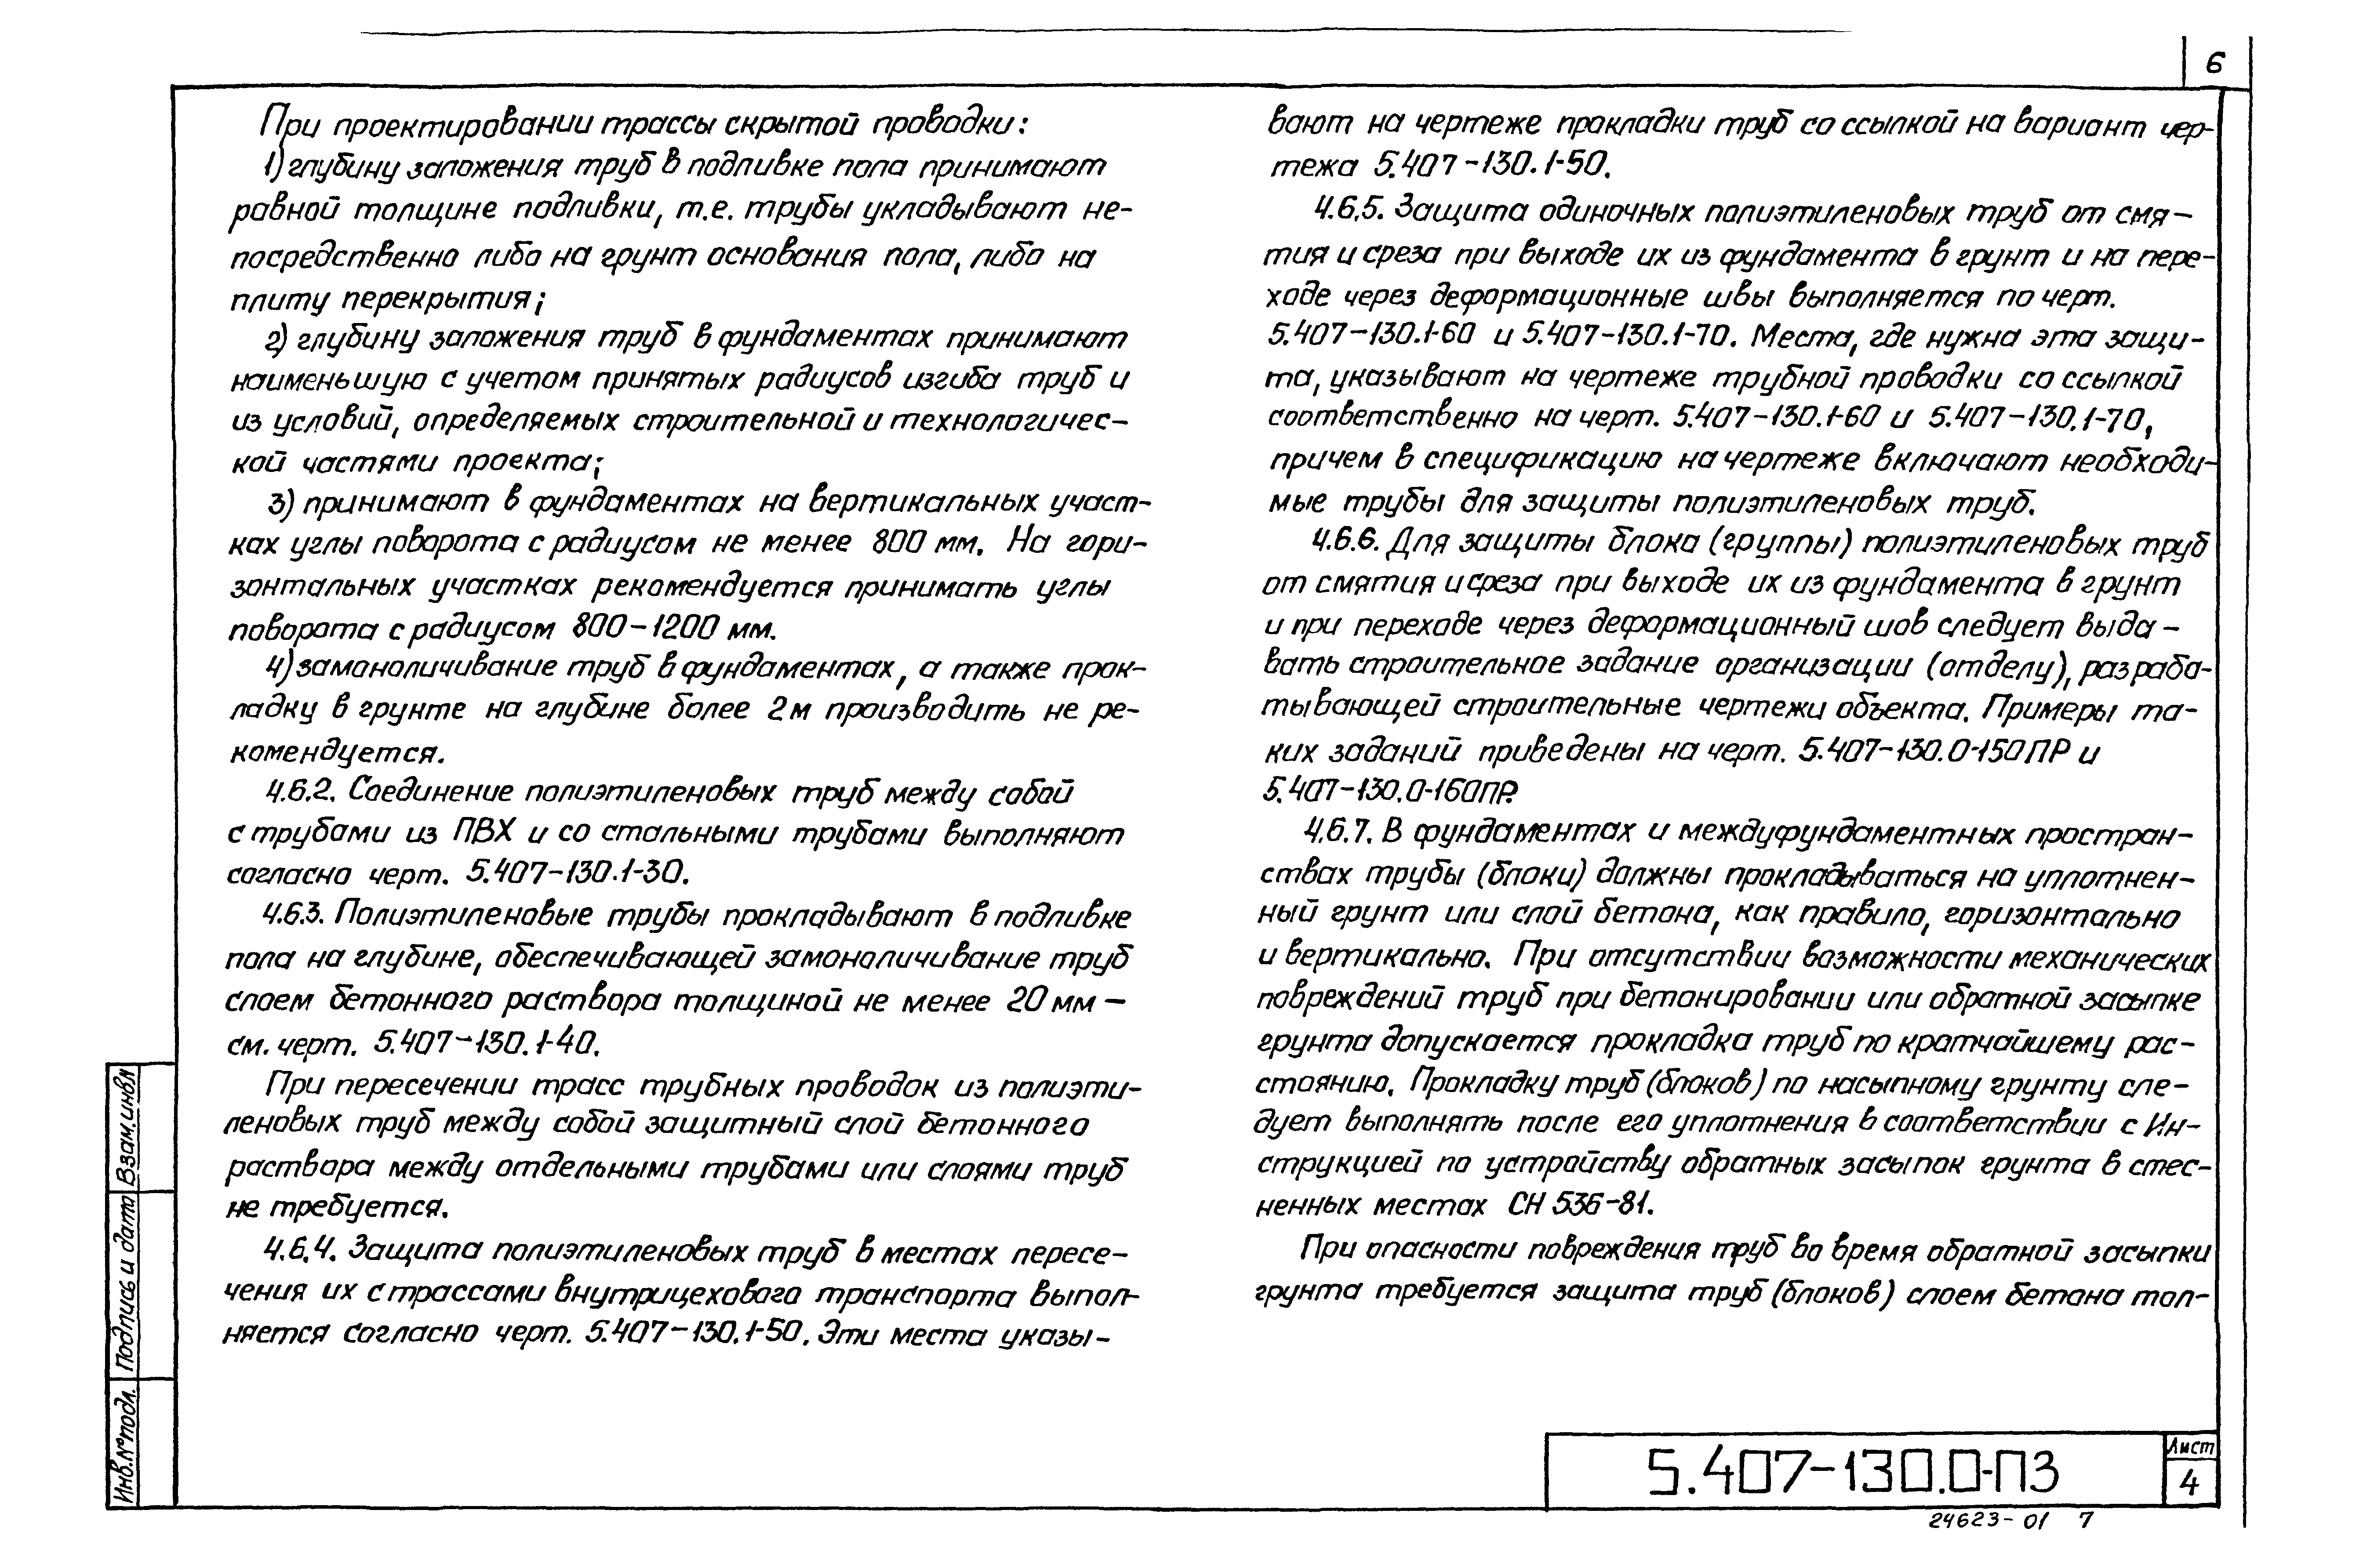 6
При проектировании трассы скрытой проводки:
1) глубину заложения труб в подливке пола принимают
равной толщине подливки, т.е. трубы укладывают не-
посредственно либо на грунт основания пола, либо на
плиту перекрытия;
2) глубину заложения труб в фундаментах принимают
наименьшую с учетом принятых радиусов изгиба труб и
из условий, определяемых строительной и технологичес-
кой частями проекта;
3) принимают в фундаментах на вертикальных участ-
ках углы поворота с радиусом не менее 800 мм. На гори-
зонтальных участках рекомендуется принимать углы
поворота с радиусом 800-1200 мм.
4) замоноличивание труб в фундаментах, а также прок-
ладку в грунте на глубине более 2м производить не ре-
комендуется.
4.6.2. Соединение полиэтиленовых труб между собой
с трубами из ПВХ и со стальными трубами выполняют
согласно черт. 5.407-130.1-30.
4.6.3. Полиэтиленовые трубы прокладывают в подливке
пола на глубине, обеспечивающей замоноличивание труб
слоем бетонного раствора толщиной не менее 20 мм —
см. черт. 5.407-130.1-40.
При пересечении трасс трубных проводок из полиэти-
леновых труб между собой защитный слой бетонного
раствора между отдельными трубами или слоями труб
не требуется.
4.6.4. Защита полиэтиленовых труб в местах пересе-
чения их с трассами внутрицехового транспорта выпол-
няется согласно черт. 5.407-130.1-50. Эти места указы-
вают на чертеже прокладки труб со ссылкой на вариант чер-
тежа 5.407-130.1-50.
4.6.5. Защита одиночных полиэтиленовых труб от смя-
тия и среза при выходе их из фундамента в грунт и на пере-
ходе через деформационные швы выполняется по черт.
5.407-130.1-60 и 5.407-130.1-70. Места, где нужна эта защи-
та, указывают на чертеже трубной проводки со ссылкой
соответственно на черт. 5.407-130.1-60 и 5.407-130.1-70,
причем в спецификацию на чертеже включают необходи-
мые трубы для защиты полиэтиленовых труб.
4.6.6. Для защиты блока (группы) полиэтиленовых труб
от смятия и среза при выходе их из фундамента в грунт
и при переходе через деформационный шов следует выда-
вать строительное задание организации (отделу), разраба-
тывающей строительные чертежи объекта. Примеры та-
ких заданий приведены на черт. 5.407-130.0-150ПР и
5.407-130.0-160ПР.
4.6.7. В фундаментах и междуфундаментных простран-
ствах трубы (блоки) должны прокладываться на уплотнен-
ный грунт или слой бетона, как правило, горизонтально
и вертикально. При отсутствии возможности механических
повреждений труб при бетонировании или обратной засыпке
грунта допускается прокладка труб по кратчайшему рас-
стоянию. Прокладку труб (блоков) по насыпному грунту сле-
дует выполнять после его уплотнения в соответствии с Ин-
струкцией по устройству обратных засыпок грунта в стес-
ненных местах СН 536-81.
При опасности повреждения труб во время обратной засыпки
грунта требуется защита труб (блоков) слоем бетона тол-
Взам.инв№
Подпись и дата
Инв.№подл.
5.407-130.0-ПЗ
Лист
4
24623-01 7